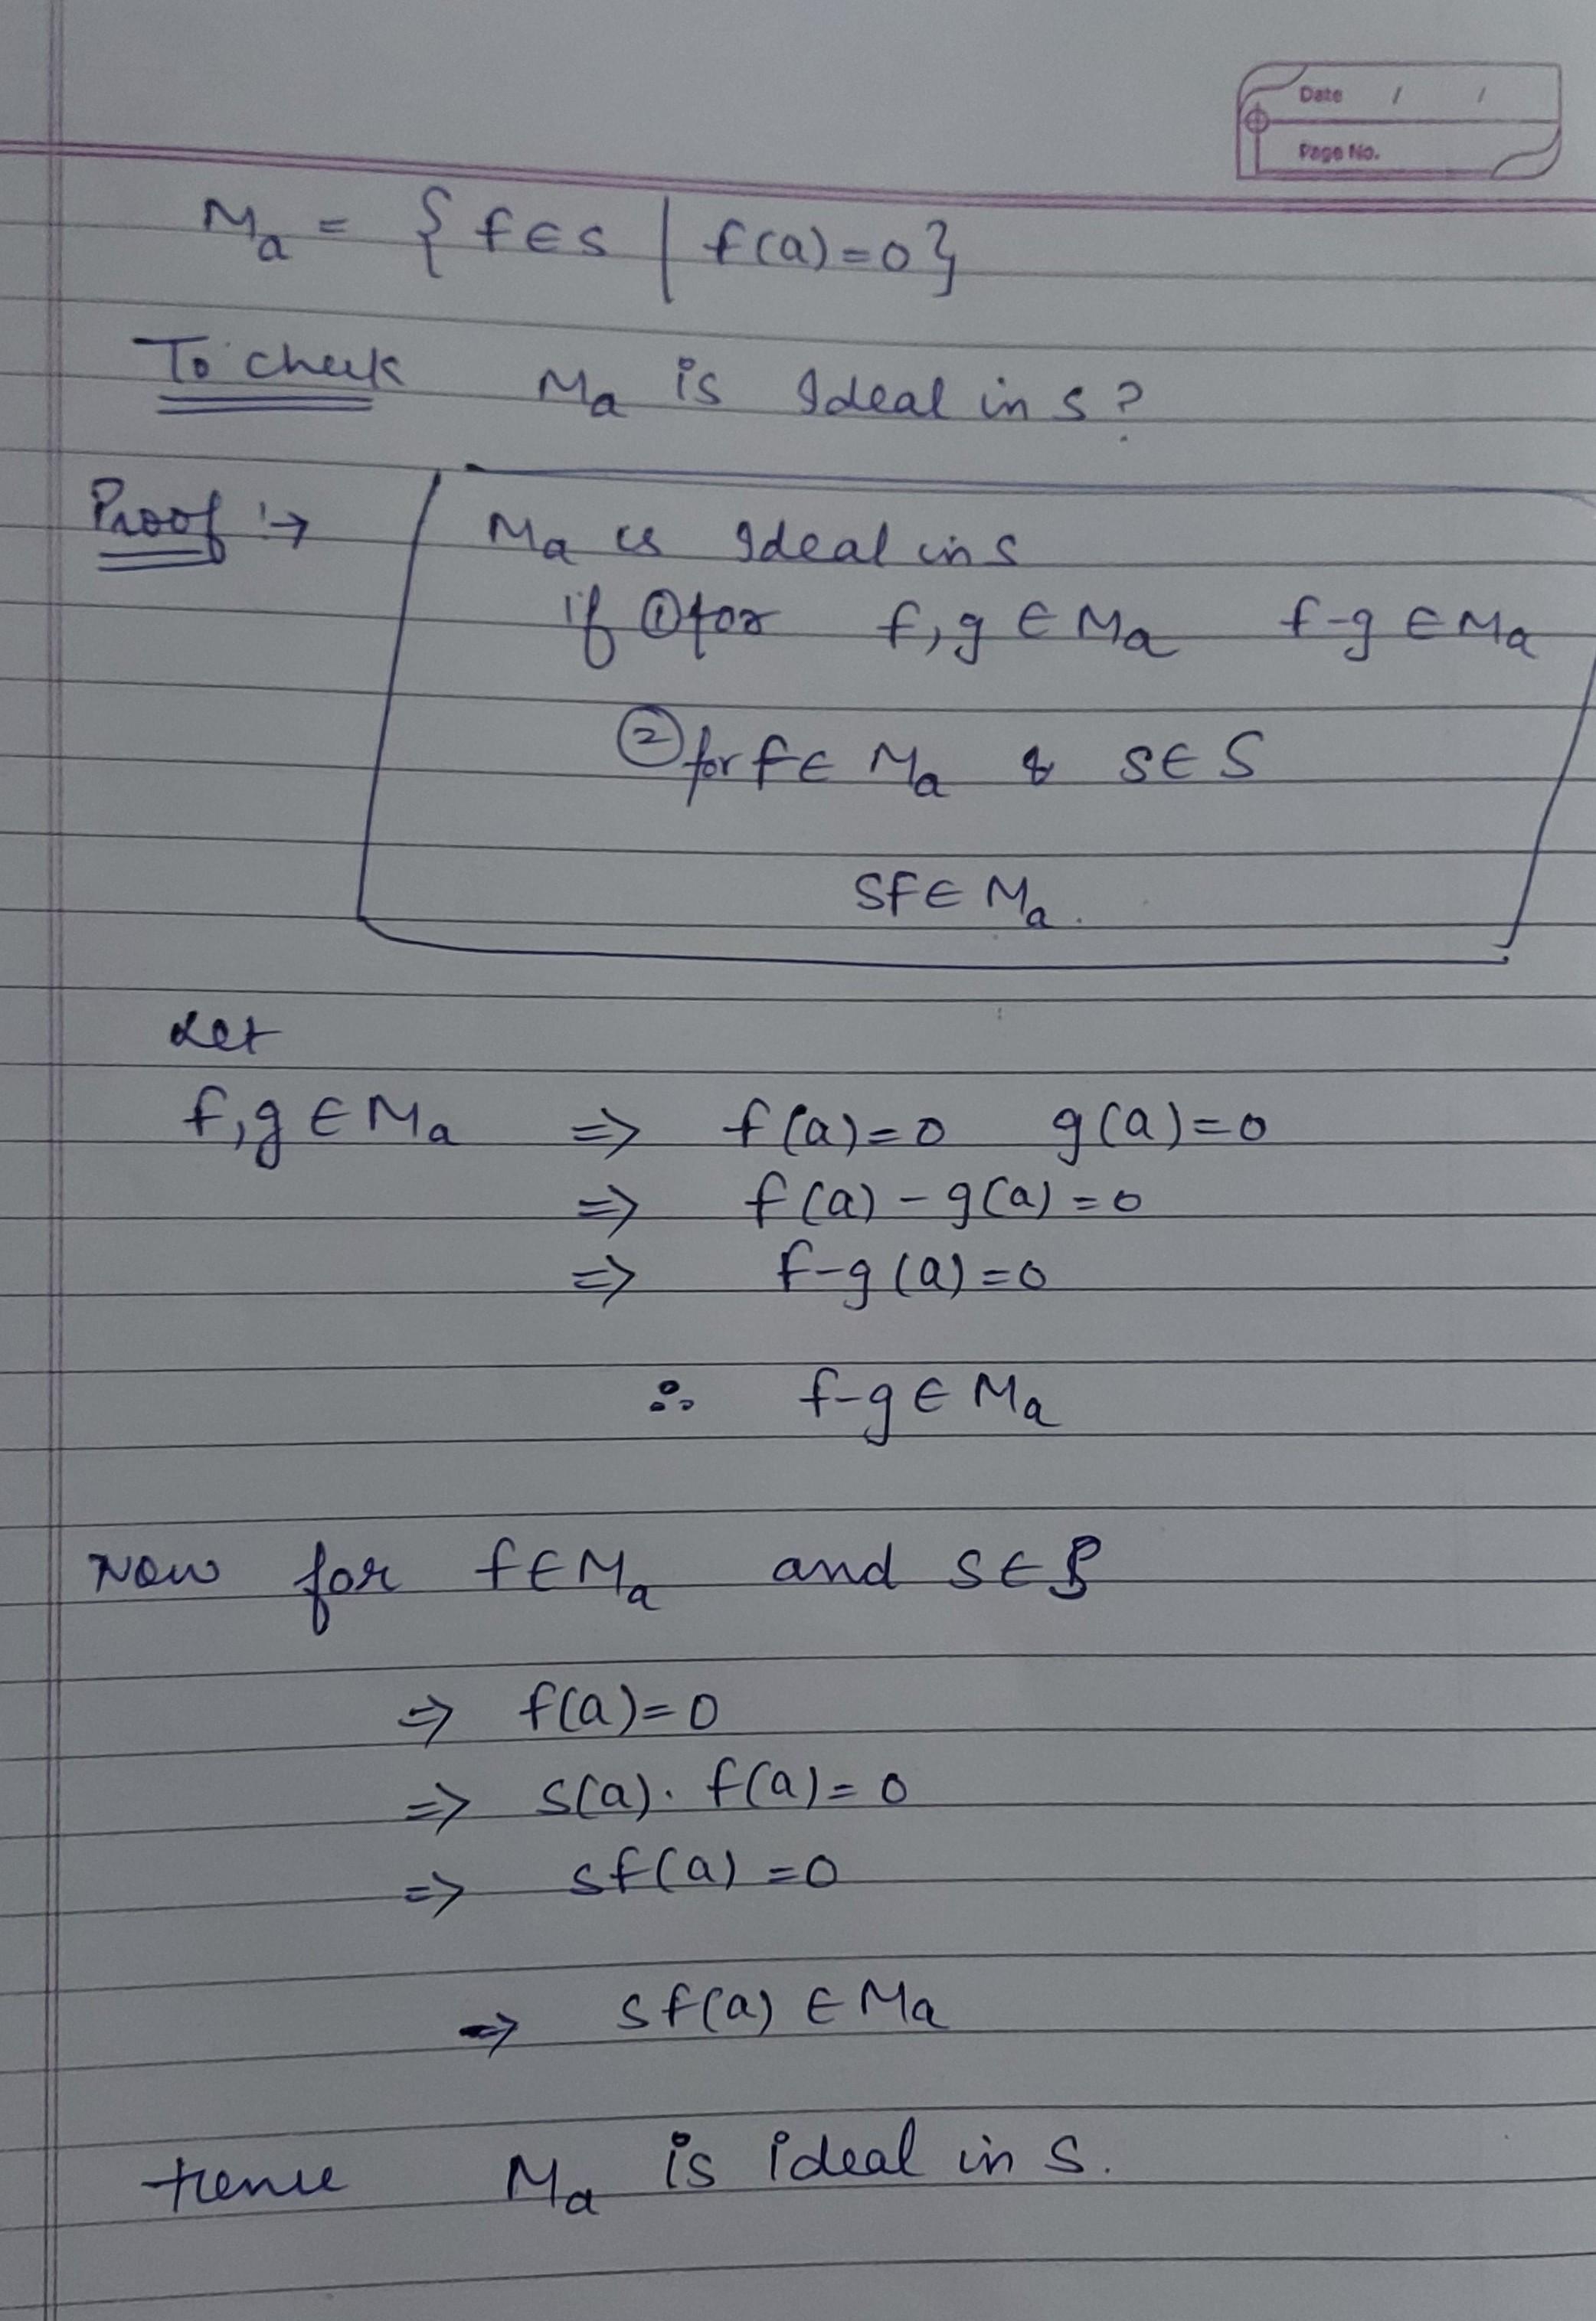 Date / /
Page No.
Ma = { f∈s | f(a)=0}
To check Ma is Ideal in s?
Proof :→ Ma is Ideal in s
if ① for f,g ∈ Ma f-g ∈ Ma
② for f∈ Ma & s∈S
sf∈ Ma.
Let
f,g ∈ Ma ⇒ f(a)=0 g(a)=0
⇒ f(a) - g(a) =0
⇒ f-g (a) =0
∴ f-g ∈ Ma
Now for f∈Ma and s∈S
⇒ f(a)=0
⇒ s(a). f(a)=0
⇒ sf(a) =0
⇒ sf(a) ∈ Ma
Hence Ma is ideal in s.